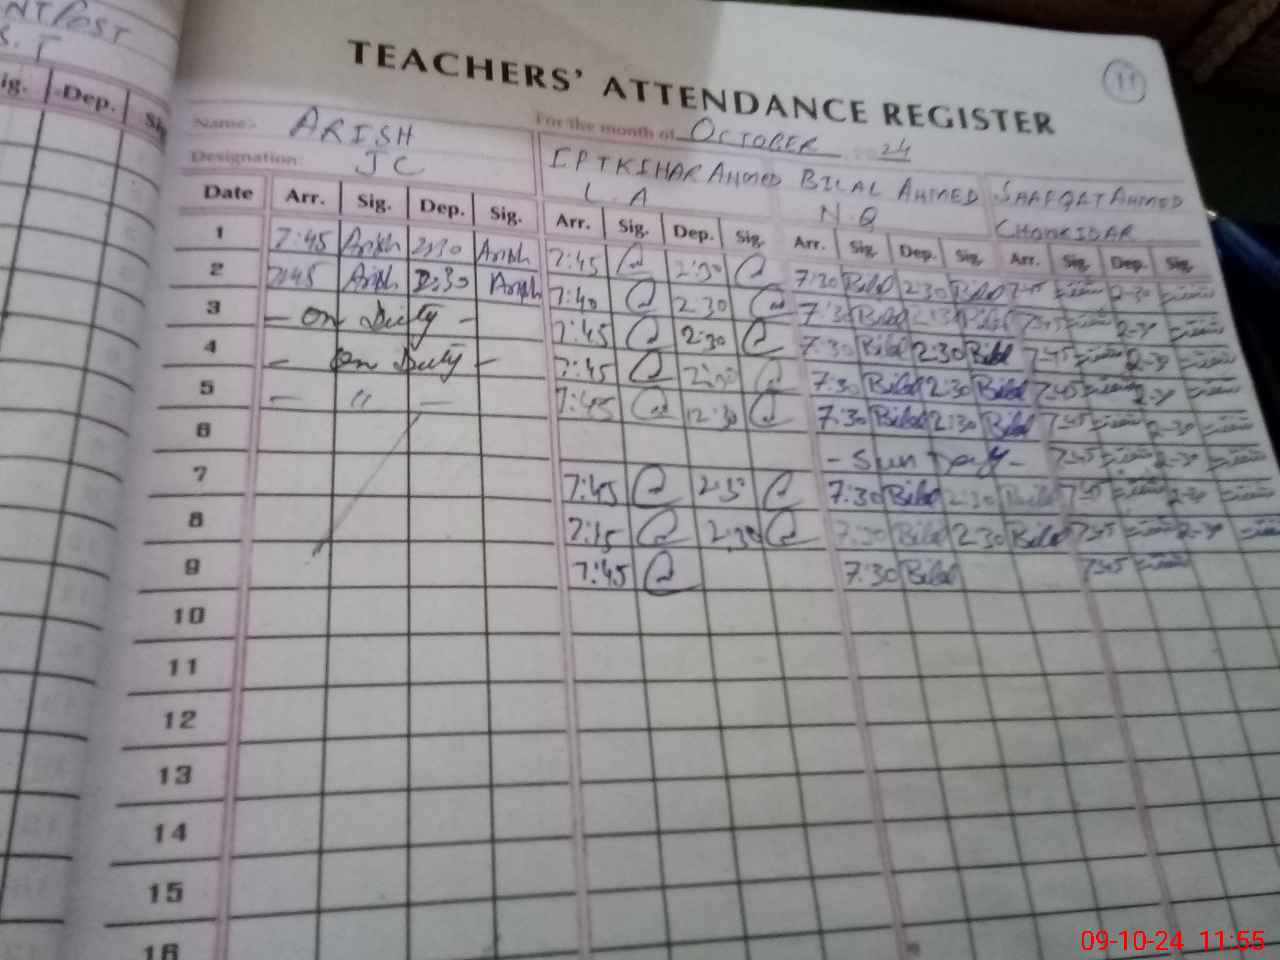 NT POST
S. T
ig. Dep. Si
TEACHERS' ATTENDANCE REGISTER
11
Name:- ARISH For the month of OCTOBER 24
Designation: JC IFTKIHAR AHMED BILAL AHMED SHAFQAT AHMED
L. A N.Q CHOWKIDAR
Date Arr. Sig. Dep. Sig. Arr. Sig. Dep. Sig. Arr. Sig. Dep. Sig. Arr. Sig. Dep. Sig.
1 7:45 Arish 2:30 Arish 7:45 2:30 7:30 Bilal 2:30 Bilal 7:45 2:30
2 7:45 Arish 2:30 Arish 7:40 2:30 7:30 Bilal 2:30 Bilal 7:45 2:30
3 - On Duty - 7:45 2:30 7:30 Bilal 2:30 Bilal 7:45 2:30
4 - On Duty - 7:45 2:30 7:30 Bilal 2:30 Bilal 7:45 2:30
5 - " - 7:45 2:30 7:30 Bilal 2:30 Bilal 7:45 2:30
6 - Sunday - 7:45 2:30
7 7:45 2:30 7:30 Bilal 2:30 Bilal 7:45 2:30
8 2:30 7:30 Bilal 2:30 Bilal 7:45 2:30
9 7:45 7:30 Bilal 7:45
10
11
12
13
14
15
16
09-10-24 11:55